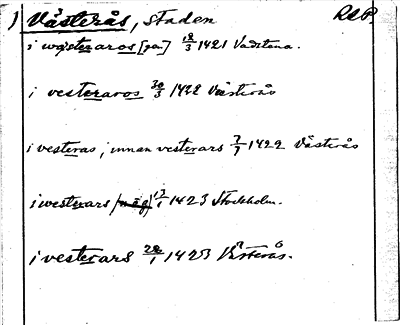 1) Västerås, staden RAP.
i wæsteraros [gen.] 12/3 1421 Vadstena.
i vesteraros 30/3 1422 Västerås
i vesteras, innan vesterars 7/7 1422 Västerås
i westerars 13/1 1423 Stockholm.
i vesterars 22/1 1423 Västerås.